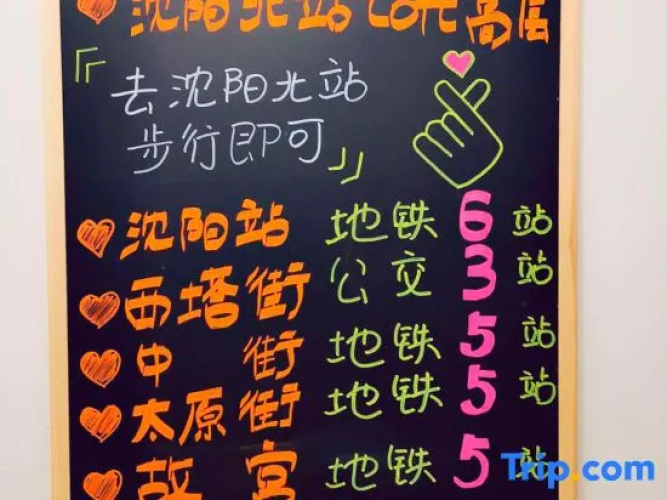 沈阳北站Loft高层
「去沈阳北站
步行即可」
沈阳站 地铁6站
西塔街 公交3站
中街 地铁5站
太原街 地铁5站
故宫 地铁5站
Trip.com